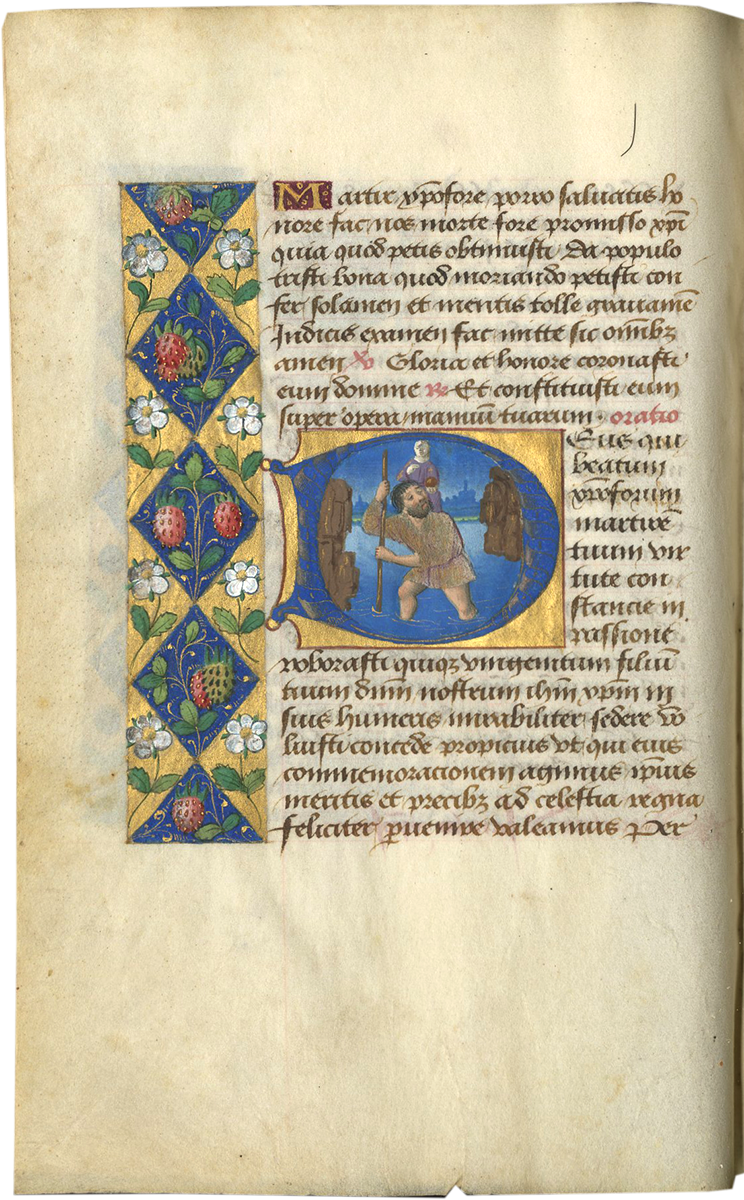 Martir xp̄ofore porro saluatis ho
nore fac nos morte fore promisso xp̄i
quia quod petis obtinuisti Da populo
tristi bona quod moriando petisti con
fer solamen et mentis tolle grauamē
Iudicis examen fac mitte sic omībz
amen ℣ Gloria et honore coronasti
eum domine ℟ Et constituisti eum
super opera manuū tuarum · oratio
Deus qui
beatum
xp̄oforum
martirē
tuum vir
tute con
stancie in
passione
roborasti quiqz vnigenitum filiū
tuum dn̄m nostrum ihm̄ xp̄m in
suis humeris mirabiliter sedere vo
luisti concede propicius vt qui eius
commemoracionem agimus ip̄ius
meritis et precibz ad celestia regna
feliciter ꝑuenire valeamus Per